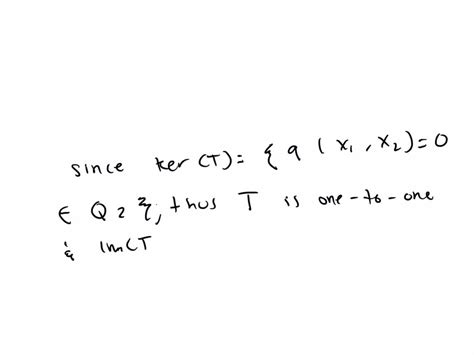 since ker (T) = { q (x₁, x₂) = 0
∈ Q₂ }, thus T is one-to-one
& im(T